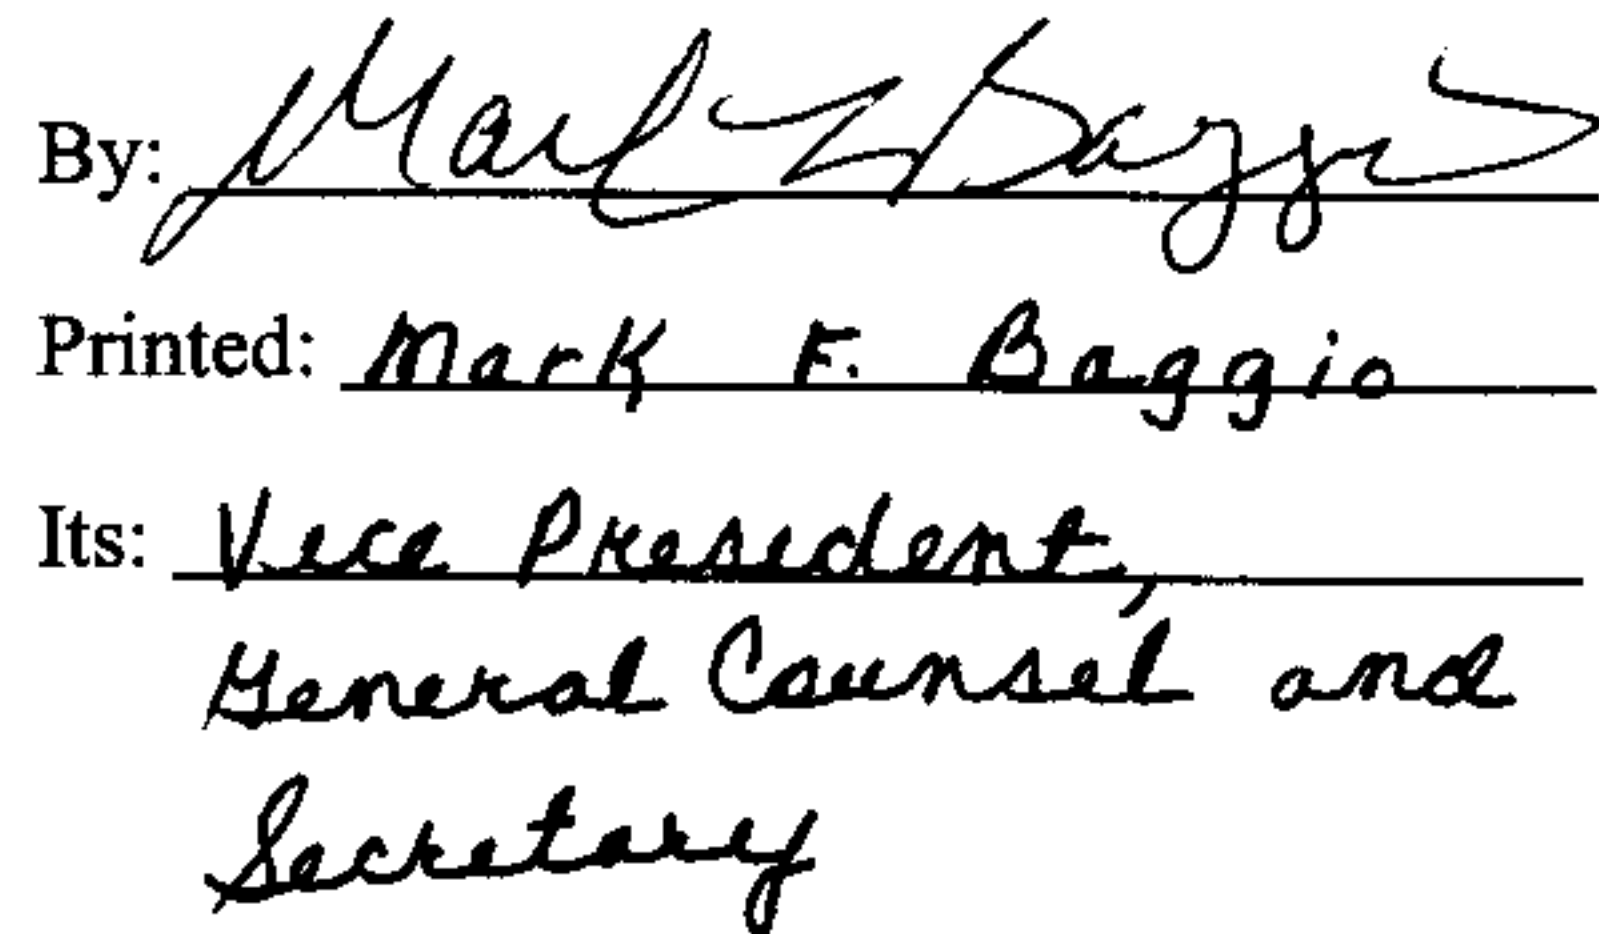 By: Mark F Baggio
Printed: Mark F. Baggio
Its: Vice President,
General Counsel and
Secretary